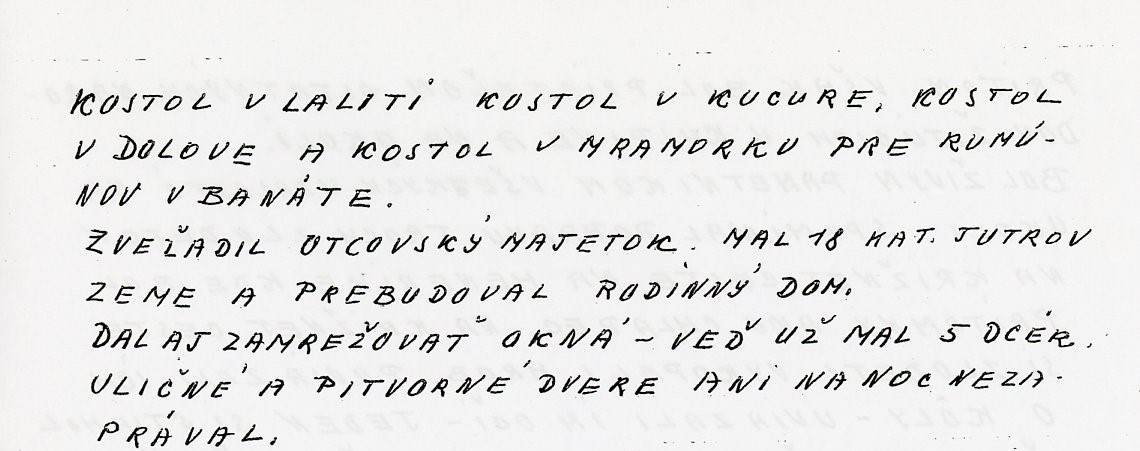 KOSTOL V LALITI KOSTOL V KUCURE, KOSTOL
V DOLOVE A KOSTOL V MRAMORKU PRE RUMÚ-
NOV V BANÁTE.
ZVEĽADIL OTCOVSKÝ MAJETOK. MAL 18 KAT. JUTROV
ZEME A PREBUDOVAL RODINNÝ DOM.
DAL AJ ZAMREŽOVAŤ OKNÁ - VEĎ UŽ MAL 5 DCÉR.
ULIČNÉ A PITVORNÉ DVERE ANI NA NOC NEZA-
PRÁVAL.